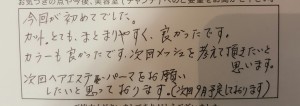 今回が初めてでした。
カットとても、まとまりやすく、良かったです。
カラーも良かったです。次回メッシュを考えて頂きたいと
思います。
次回ヘアエステ、パーマをお願い
したいと思っております。(次回7月予定しております)